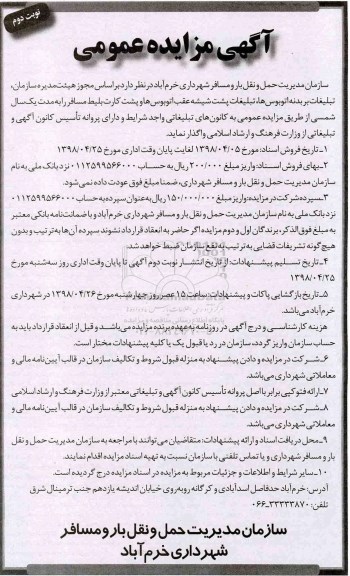 نوبت دوم
آگهی مزایده عمومی
سازمان مدیریت حمل و نقل بار و مسافر شهرداری خرم آباد در نظر دارد بر اساس مجوز هیئت مدیره سازمان،
تبلیغات بر بدنه اتوبوس‌ها، تبلیغات پشت شیشه عقب اتوبوس‌ها و پشت کارت بلیط مسافر را به مدت یک سال
شمسی از طریق مزایده عمومی به کانون‌های تبلیغاتی واجد شرایط و دارای پروانه تأسیس کانون آگهی و
تبلیغاتی از وزارت فرهنگ و ارشاد اسلامی واگذار نماید.
۱ـ تاریخ فروش اسناد: مورخ ۱۳۹۸/۰۴/۰۵ لغایت پایان وقت اداری مورخ ۱۳۹۸/۰۴/۲۵
۲ـ بهای فروش اسناد: واریز مبلغ ۲۰۰/۰۰۰ ریال به حساب ۰۱۱۲۵۹۹۵۶۶۰۰۰ نزد بانک ملی به نام
سازمان مدیریت حمل و نقل بار و مسافر شهرداری، ضمنا مبلغ فوق عودت داده نمی‌شود.
۳ـ سپرده شرکت در مزایده: واریز مبلغ ۱۵۰/۰۰۰/۰۰۰ ریال به عنوان سپرده به حساب ۰۱۱۲۵۹۹۵۶۶۰۰۰
نزد بانک ملی به نام سازمان مدیریت حمل و نقل بار و مسافر شهرداری خرم آباد و یا ضمانت‌نامه بانکی معتبر
به مبلغ فوق الذکر، برندگان اول و دوم مزایده اگر حاضر به انعقاد قرارداد نشوند سپرده آن‌ها به ترتیب و بدون
هیچ گونه تشریفات قضایی به ترتیب به نفع سازمان ضبط خواهد شد.
۴ـ تاریخ تسلیم پیشنهادات: از تاریخ انتشار نوبت دوم آگهی تا پایان وقت اداری روز سه‌شنبه مورخ
۱۳۹۸/۰۴/۲۵
۵ـ تاریخ بازگشایی پاکات و پیشنهادات: ساعت ۱۵ عصر روز چهارشنبه مورخ ۱۳۹۸/۰۴/۲۶ در شهرداری
خرم آباد می‌باشد.
هزینه کارشناسی و درج آگهی در روزنامه به عهده برنده مزایده می‌باشد و قبل از انعقاد قرارداد باید به
حساب سازمان واریز گردد، سازمان در رد یا قبول یک یا کلیه پیشنهادات مختار است.
۶ـ شرکت در مزایده و دادن پیشنهاد به منزله قبول شروط و تکالیف سازمان در قالب آیین‌نامه مالی و
معاملاتی شهرداری می‌باشد.
۷ـ ارائه فتوکپی برابر با اصل پروانه تأسیس کانون آگهی و تبلیغاتی معتبر از وزارت فرهنگ و ارشاد اسلامی
۸ـ شرکت در مزایده و دادن پیشنهاد به منزله قبول شروط و تکالیف سازمان در قالب آیین‌نامه مالی و
معاملاتی شهرداری می‌باشد.
۹ـ محل دریافت اسناد و ارائه پیشنهادات: متقاضیان می‌توانند با مراجعه به سازمان مدیریت حمل و نقل
بار و مسافر شهرداری و یا تماس تلفنی با سازمان نسبت به تهیه اسناد مزایده اقدام نمایند.
۱۰ـ سایر شرایط و اطلاعات و جزئیات مربوط به مزایده در اسناد مزایده درج گردیده است.
آدرس: خرم آباد حدفاصل اسدآبادی و کرگانه روبه‌روی خیابان اندیشه یازدهم جنب ترمینال شرق
تلفن: ۳۳۳۳۳۸۷۰-۰۶۶
سازمان مدیریت حمل و نقل بار و مسافر
شهرداری خرم آباد